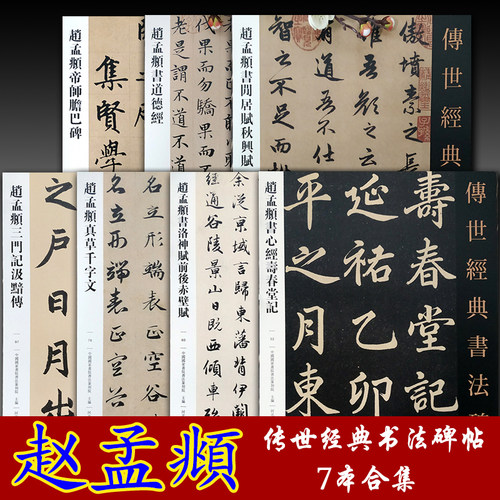 趙孟頫帝師膽巴碑
集賢學
趙孟頫書道德經
成果而勿驕果而
老是謂不道不道
趙孟頫書閒居賦秋興賦
傲墳素之長
雖吾顏之云
道吾不
之不足而拙
傳世經典
趙孟頫三門記汲黯傳
之戶日月出
趙孟頫真草千字文
名立形端表正空谷
名立形端表正空谷
趙孟頫書洛神賦前後赤壁賦
余從京域言歸東藩背伊闕
經通谷陵景山日既西傾車殆
趙孟頫書心經壽春堂記
壽春堂記
延祐乙卯
平之月東
傳世經典書法碑
赵孟頫
传世经典书法碑帖
7本合集